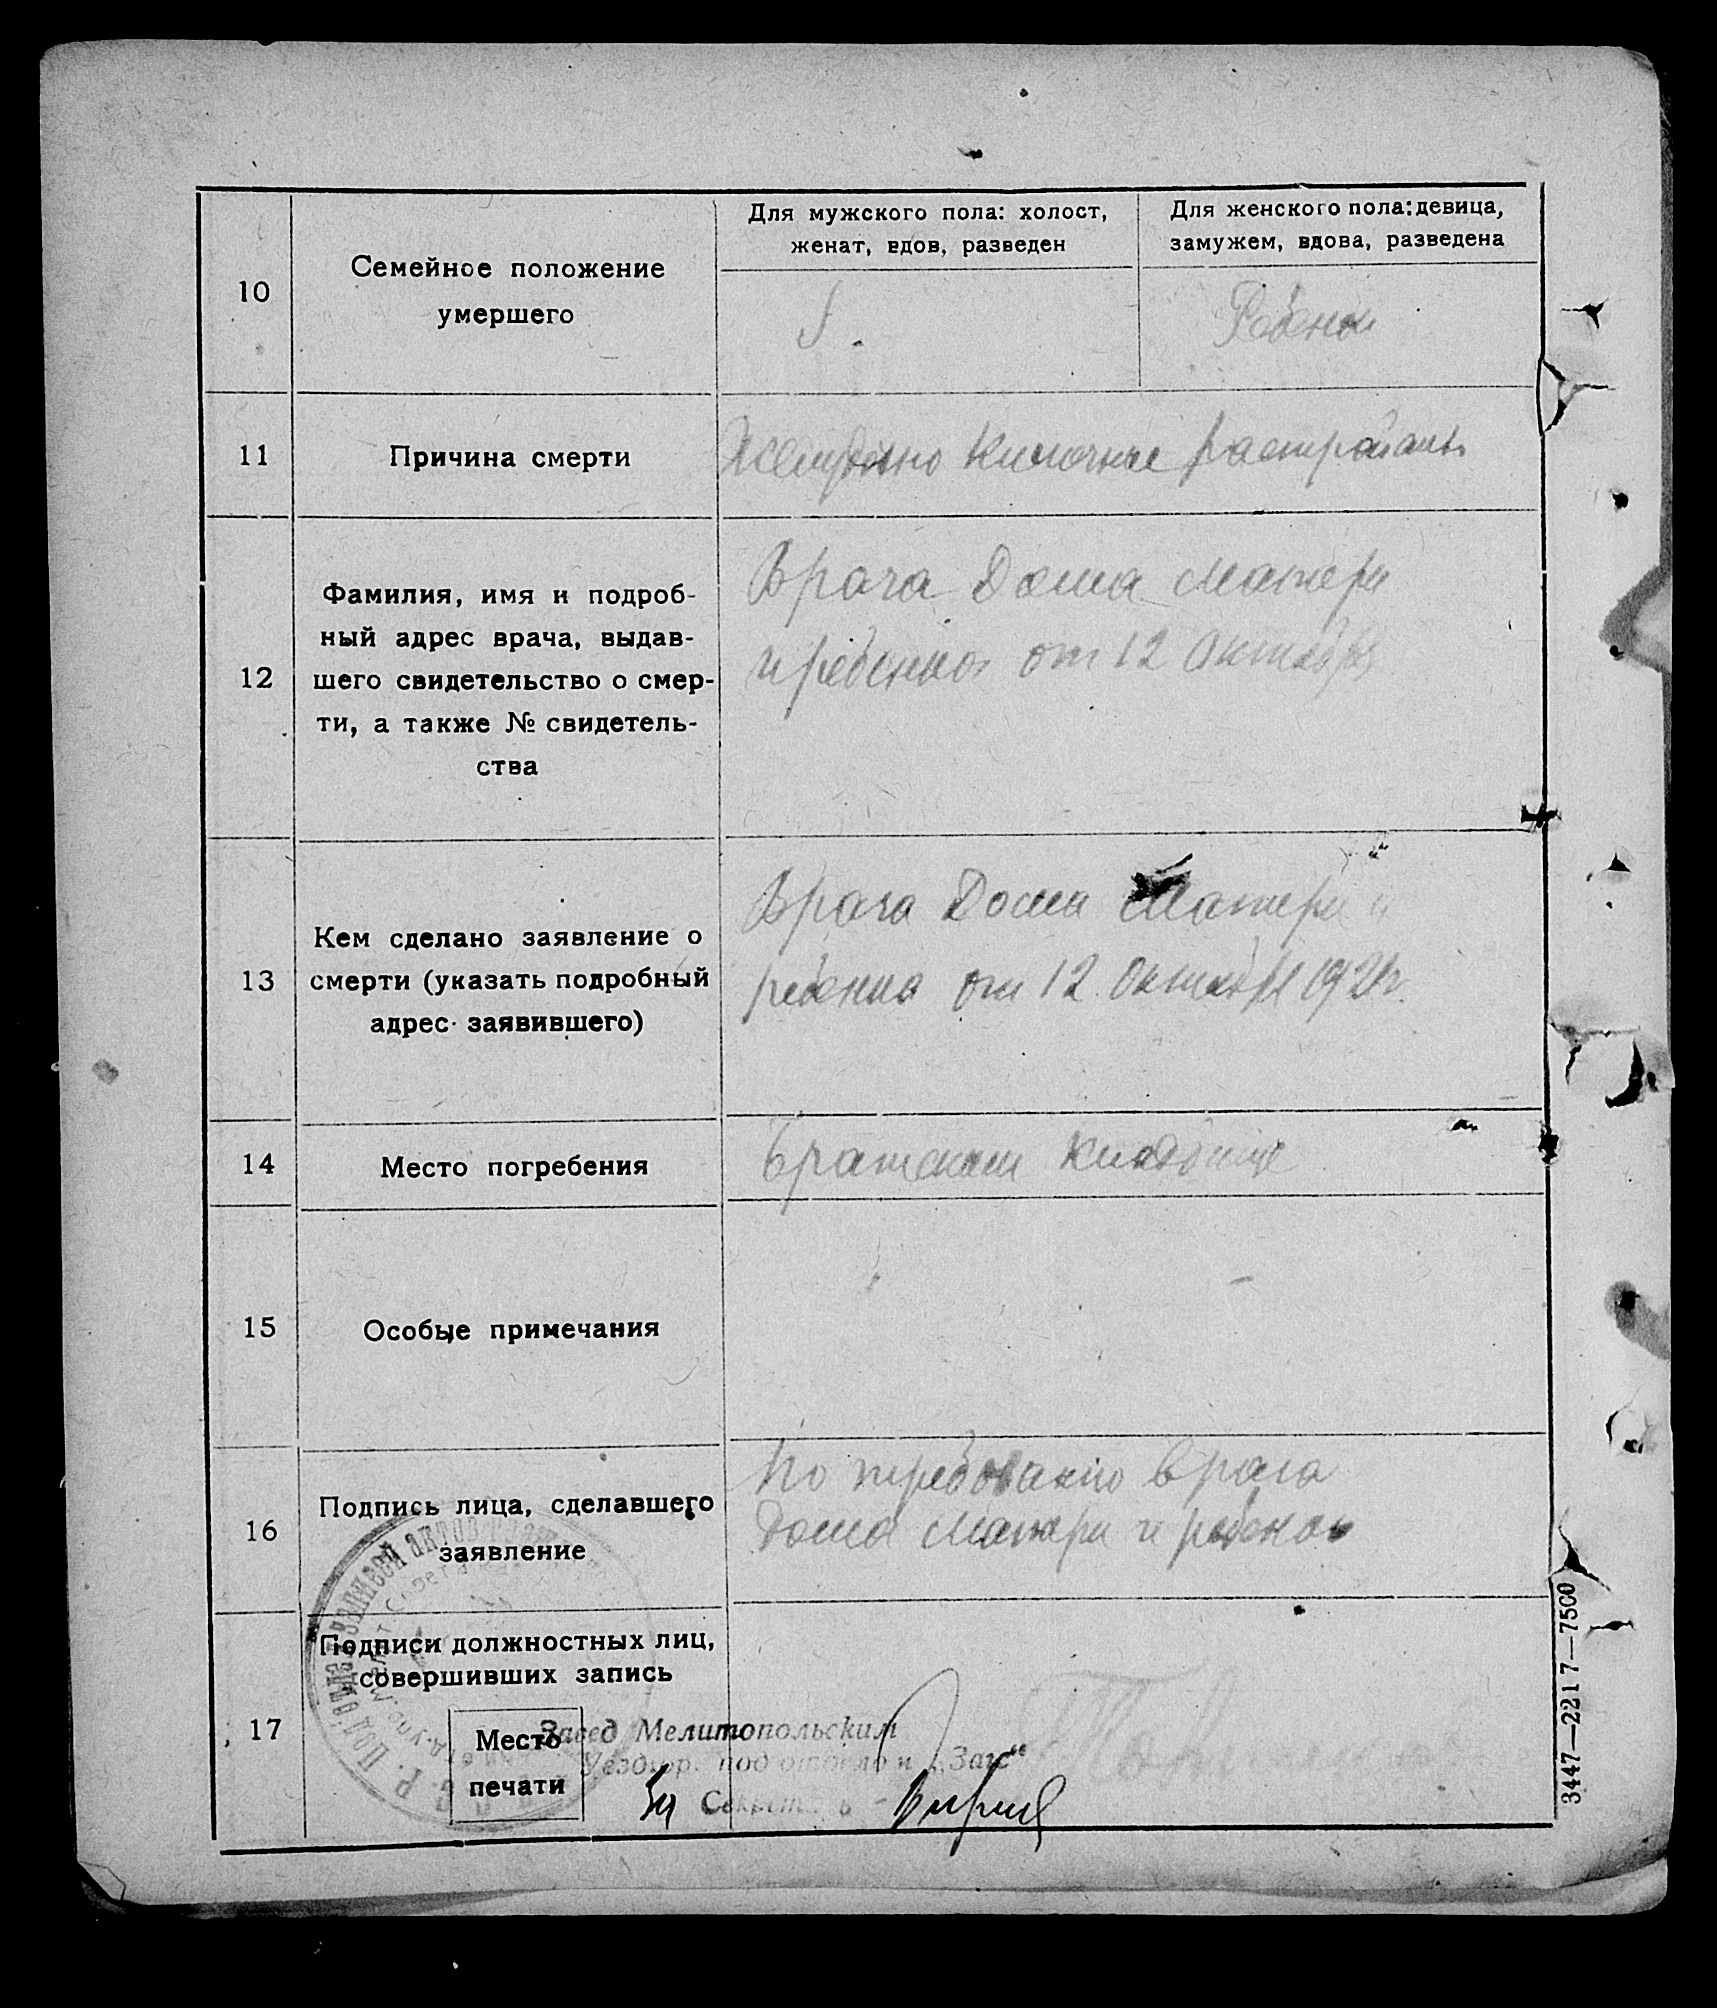 10
Семейное положение
умершего
Для мужского пола: холост,
женат, вдов, разведен
Для женского пола: девица,
замужем, вдова, разведена
Ребенок
11
Причина смерти
Желудочно Кишечные расстройств
12
Фамилия, имя и подроб-
ный адрес врача, выдав-
шего свидетельство о смер-
ти, а также № свидетель-
ства
Врача Дома Матери
и ребенка от 12 Октября
13
Кем сделано заявление о
смерти (указать подробный
адрес заявившего)
Врача Дома Матери и
ребенка от 12 Октября 192 г.
14
Место погребения
Братском Кладбище
15
Особые примечания
16
Подпись лица, сделавшего
заявление
По требованию врача
Дома Матери и ребенка
17
Подписи должностных лиц,
совершивших запись
Место
печати
Завед Мелитопольским
Уездгор. под отдело м „Загс“
За Секретарь
3447—2217—7500